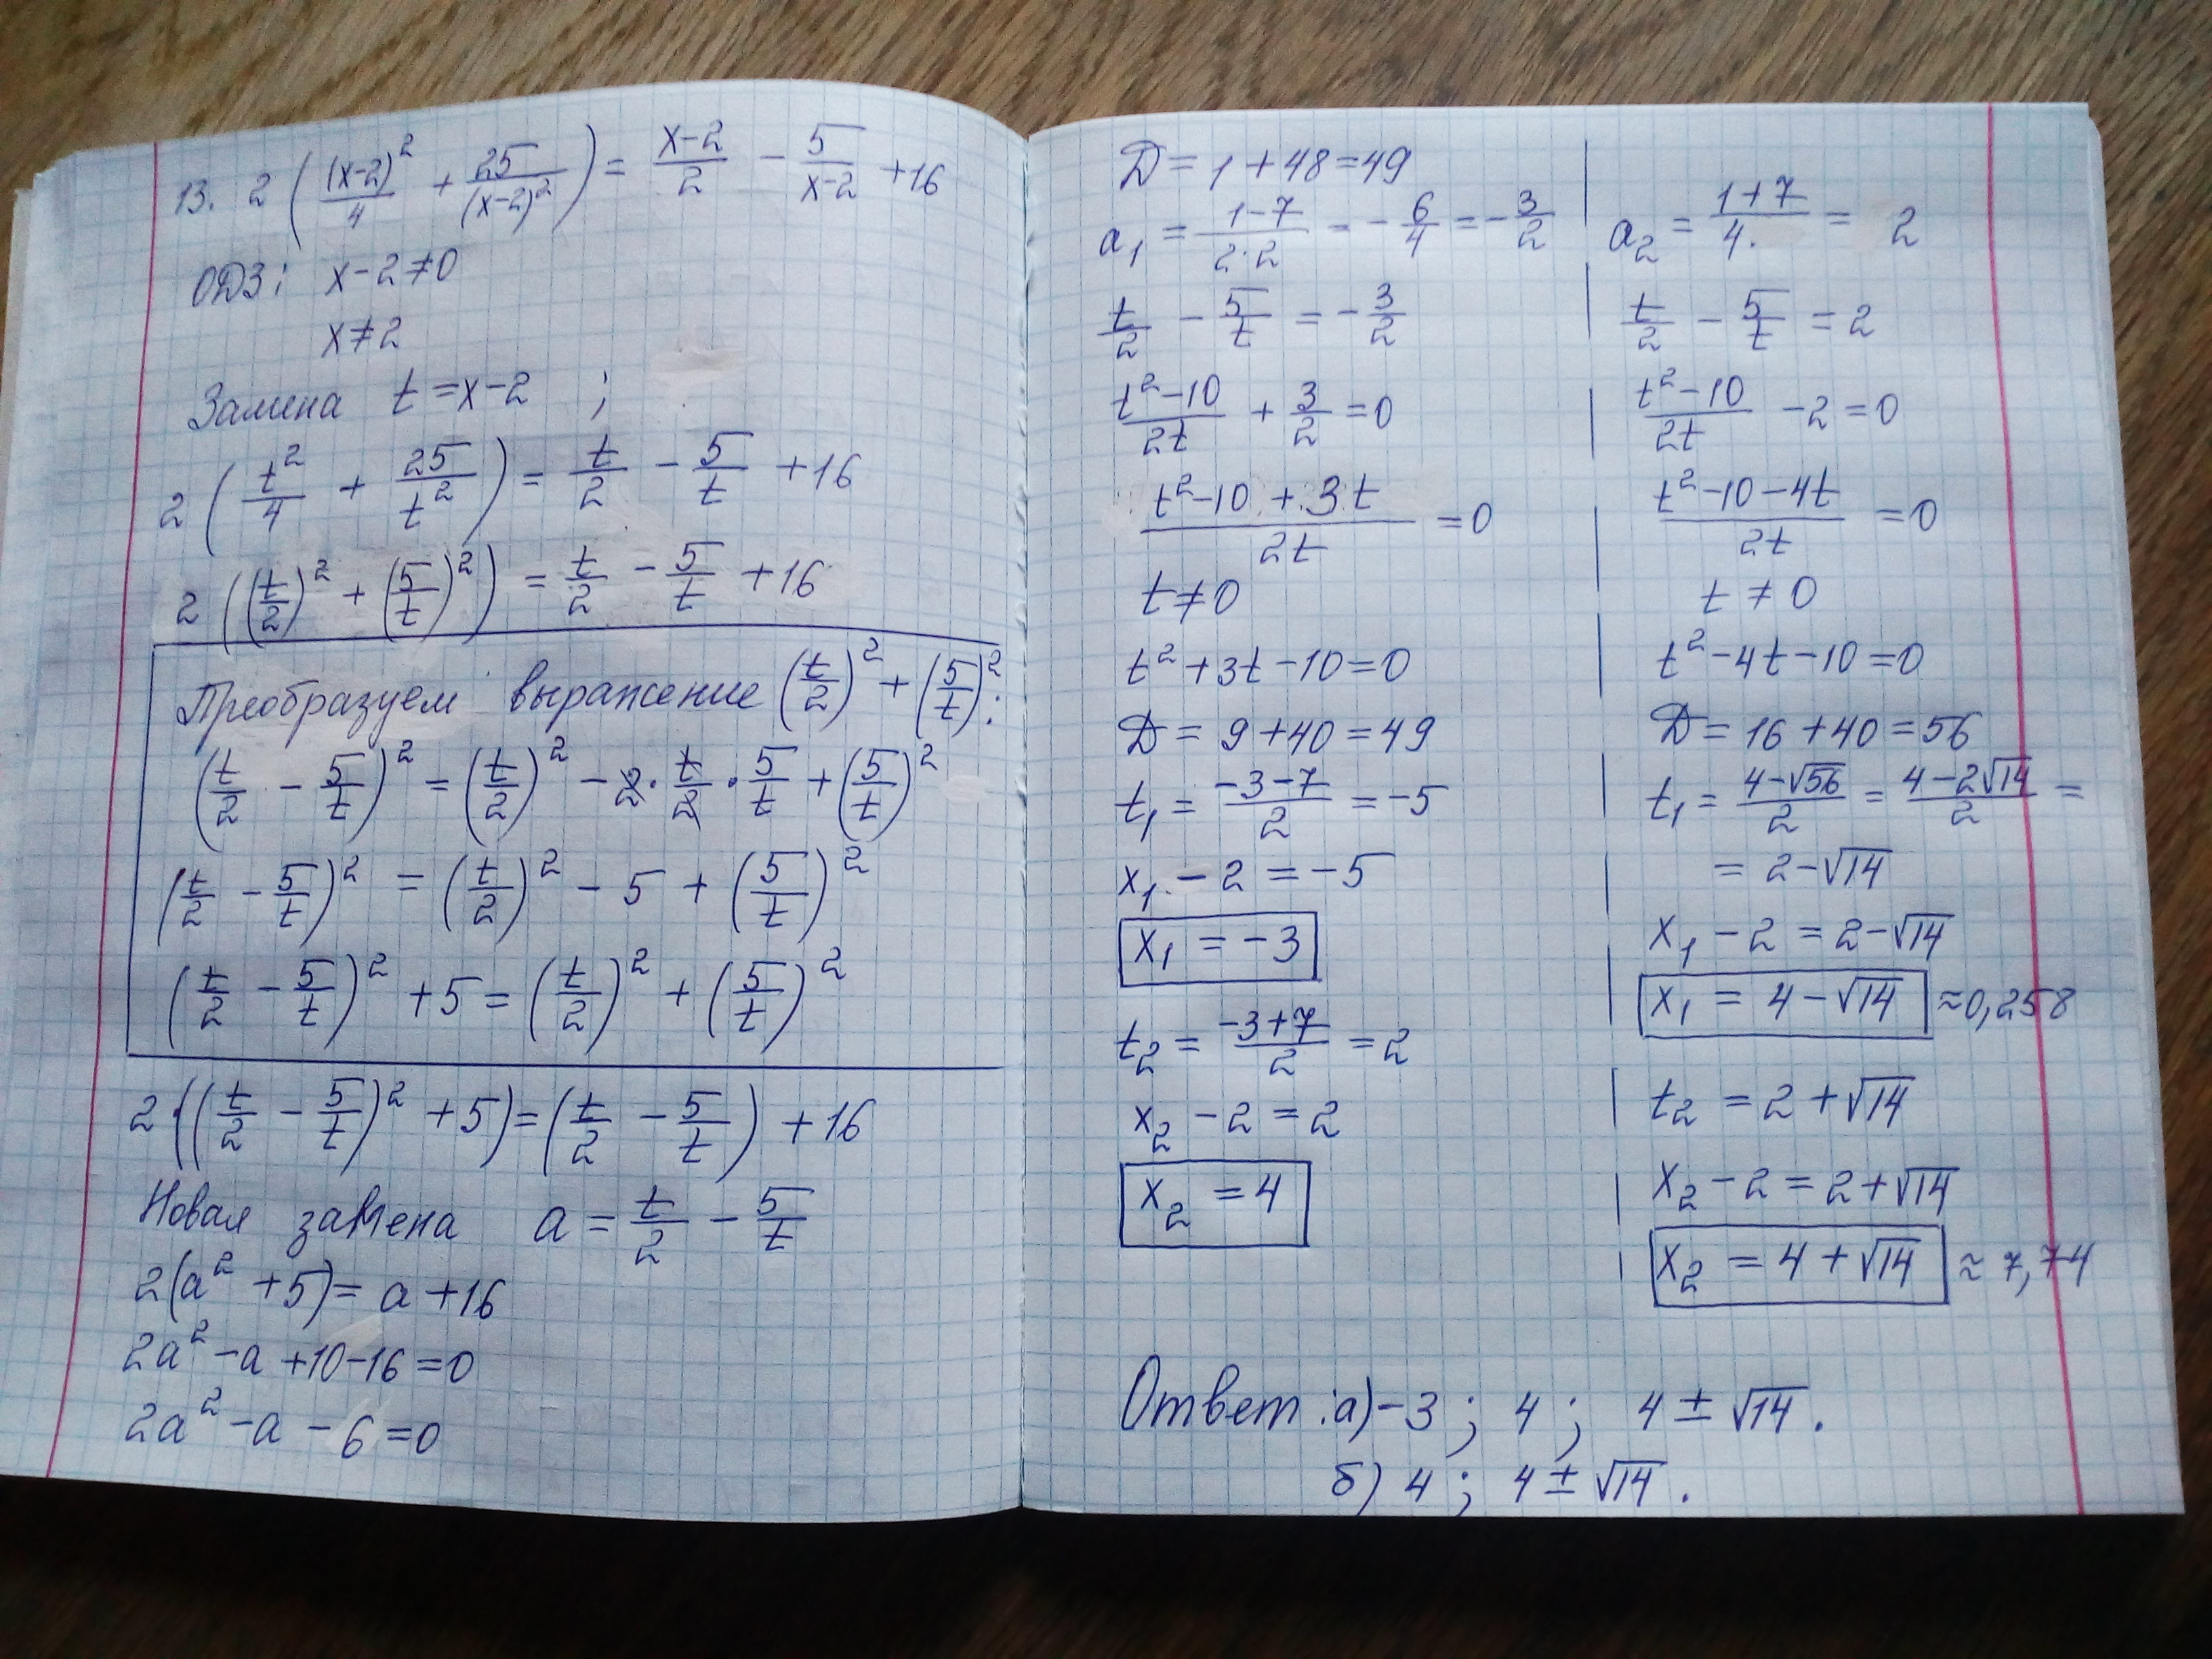 13. 2 ( (x-2)²/4 + 25/(x-2)² ) = (x-2)/2 - 5/(x-2) + 16
ОДЗ: x-2≠0
x≠2
Замена t = x-2 ;
2 ( t²/4 + 25/t² ) = t/2 - 5/t + 16
2 ( (t/2)² + (5/t)² ) = t/2 - 5/t + 16
Преобразуем выражение (t/2)² + (5/t)² :
(t/2 - 5/t)² = (t/2)² - 2 · t/2 · 5/t + (5/t)²
(t/2 - 5/t)² = (t/2)² - 5 + (5/t)²
(t/2 - 5/t)² + 5 = (t/2)² + (5/t)²
2·((t/2 - 5/t)² + 5) = (t/2 - 5/t) + 16
Новая замена a = t/2 - 5/t
2(a² + 5) = a + 16
2a² - a + 10 - 16 = 0
2a² - a - 6 = 0
D = 1 + 48 = 49
a₁ = (1-7)/(2·2) = - 6/4 = - 3/2
t/2 - 5/t = - 3/2
(t²-10)/2t + 3/2 = 0
(t²-10+3t)/2t = 0
t≠0
t² + 3t - 10 = 0
D = 9 + 40 = 49
t₁ = (-3-7)/2 = -5
x₁ - 2 = -5
x₁ = -3
t₂ = (-3+7)/2 = 2
x₂ - 2 = 2
x₂ = 4
a₂ = (1+7)/4. = 2
t/2 - 5/t = 2
(t²-10)/2t - 2 = 0
(t²-10-4t)/2t = 0
t ≠ 0
t² - 4t - 10 = 0
D = 16 + 40 = 56
t₁ = (4-√56)/2 = (4-2√14)/2 =
= 2-√14
x₁ - 2 = 2-√14
x₁ = 4-√14 ≈0,258
t₂ = 2+√14
x₂ - 2 = 2+√14
x₂ = 4+√14 ≈ 7,74
Ответ: а) -3 ; 4 ; 4 ± √14 .
б) 4 ; 4 ± √14 .